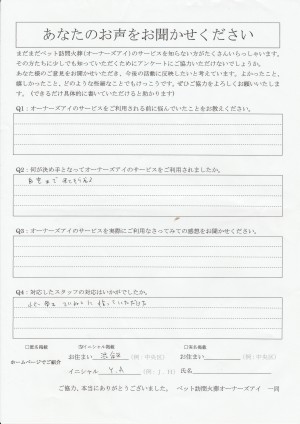 あなたのお声をお聞かせください
まだまだペット訪問火葬(オーナーズアイ)のサービスを知らない方がたくさんいらっしゃいます。
その方たちに少しでも知っていただくためにアンケートにご協力いただけないでしょうか。
あなた様のご意見をお聞かせいただき、今後の活動に反映したいと考えています。よかったこと、
嬉しかったこと、どのような些細なことでもけっこうです。ぜひご協力をよろしくお願いいたしま
す。(できるだけ具体的に書いていただけると助かります)
Q1:オーナーズアイのサービスをご利用される前に悩んでいたことをお教えください。
Q2:何が決め手となってオーナーズアイのサービスをご利用されましたか。
自宅まで来てもらえる
Q3:オーナーズアイのサービスを実際にご利用なさってみての感想をお聞かせください。
Q4:対応したスタッフの対応はいかがでしたか。
ていねいに
いただけた
□匿名掲載 ☑イニシャル掲載 □実名掲載
お住まい 渋谷区 (例:中央区) お住まい (例:中央区)
ホームページでご紹介
イニシャル Y.A (例:J.H) 氏名
ご協力、本当にありがとうございました。 ペット訪問火葬オーナーズアイ 一同